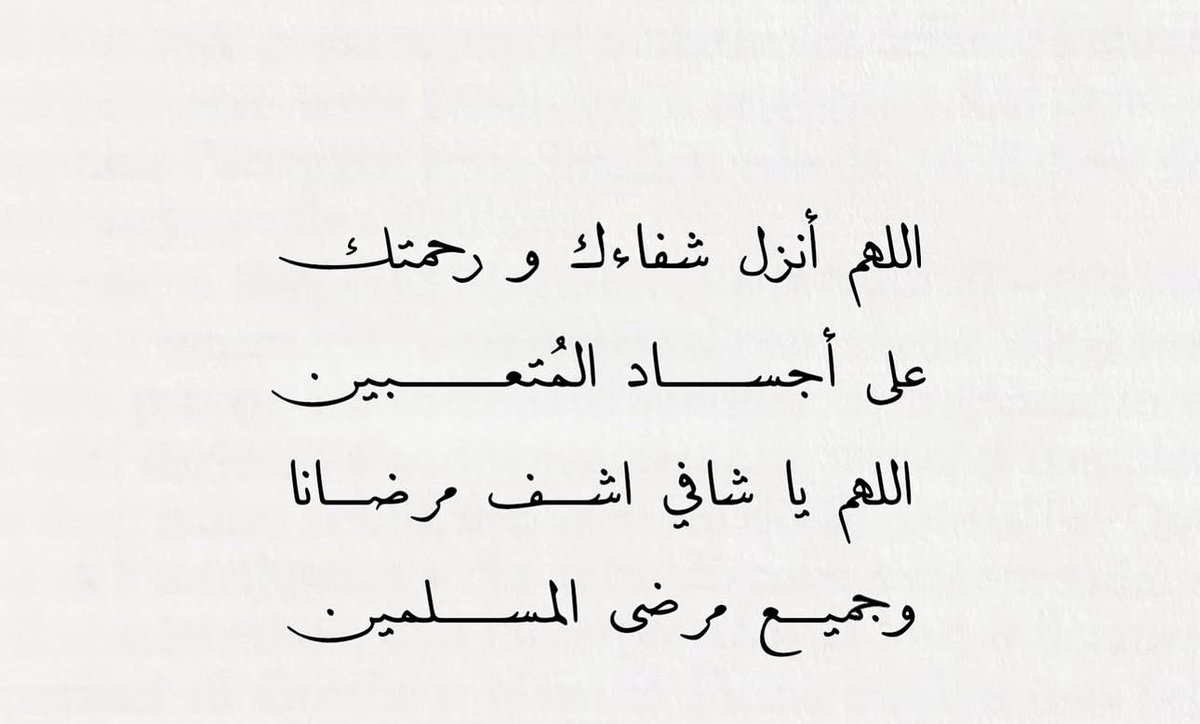 اللهم أنزل شفاءك و رحمتك
على أجساد المُتعبين
اللهم يا شافي اشف مرضانا
وجميع مرضى المسلمين